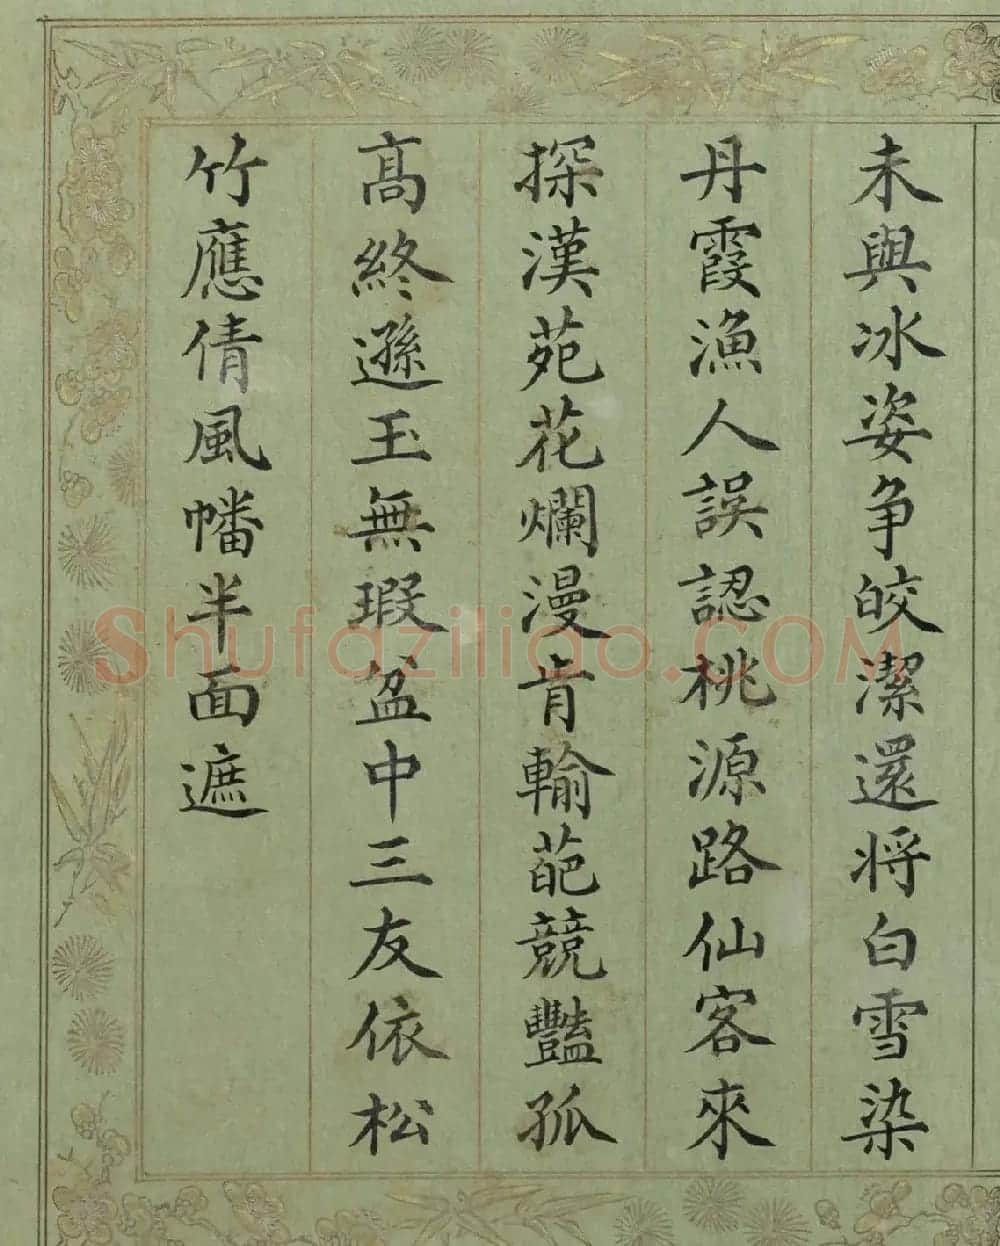 未與冰姿争皎潔還将白雪染
丹霞漁人誤認桃源路仙客來
探漢苑花爛漫肯輸葩競豔孤
髙終遜玉無瑕盆中三友依松
竹應倩風幡半面遮
Shufaziliao.COM